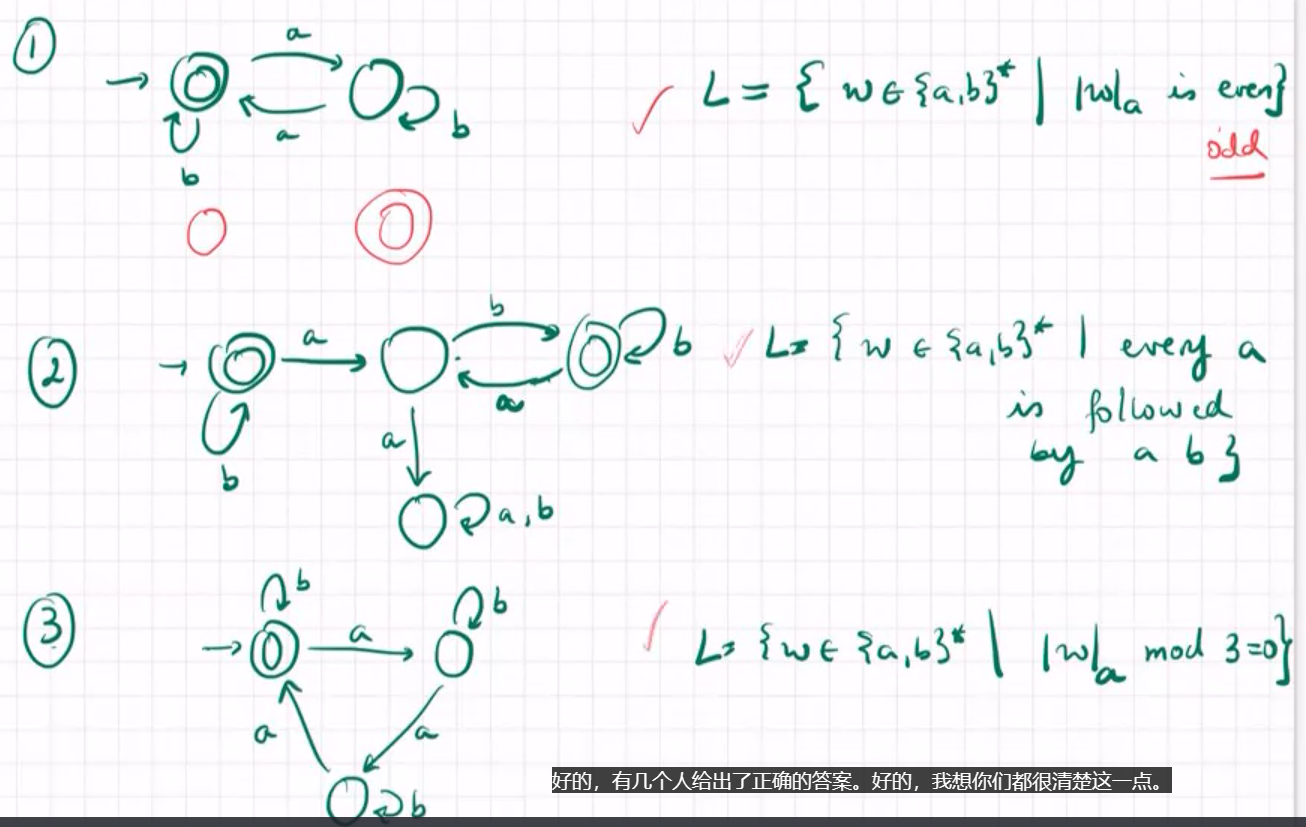 ①
a
a
b
b
L = { w ∈ {a,b}* | |w|ₐ is even}
odd
②
a
b
a
b
b
a
a,b
L = { w ∈ {a,b}* | every a
is followed
by a b }
③
b
a
b
a
a
b
L = {w ∈ {a,b}* | |w|ₐ mod 3=0}
好的，有几个人给出了正确的答案。好的，我想你们都很清楚这一点。